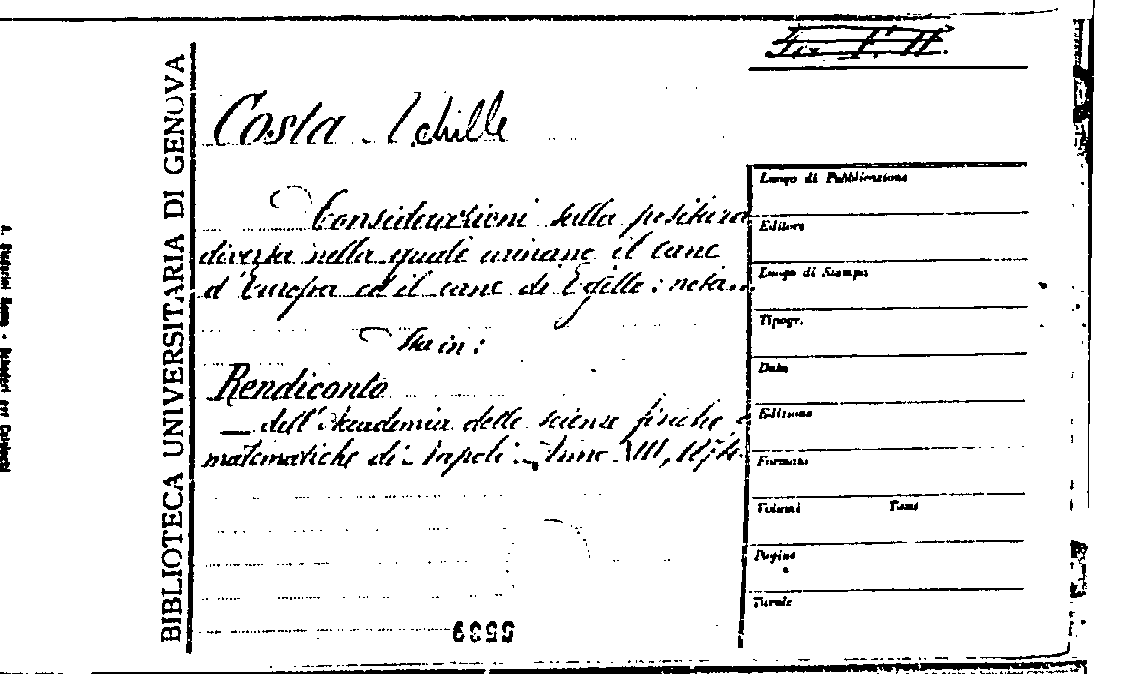 BIBLIOTECA UNIVERSITARIA DI GENOVA
Costa Achille
Considerazioni sulla positura
diversa nella quale urinano il cane
d'Europa ed il cane di Egitto: nota.
Sta in:
Rendiconto
dell'Accademia delle scienze fisiche e
matematiche di Napoli. Anno XIII, 1874.
Luogo di Pubblicazione
Editore
Luogo di Stampa
Tipogr.
Data
Edizione
Formato
Volumi Tomi
Pagine
Tavole